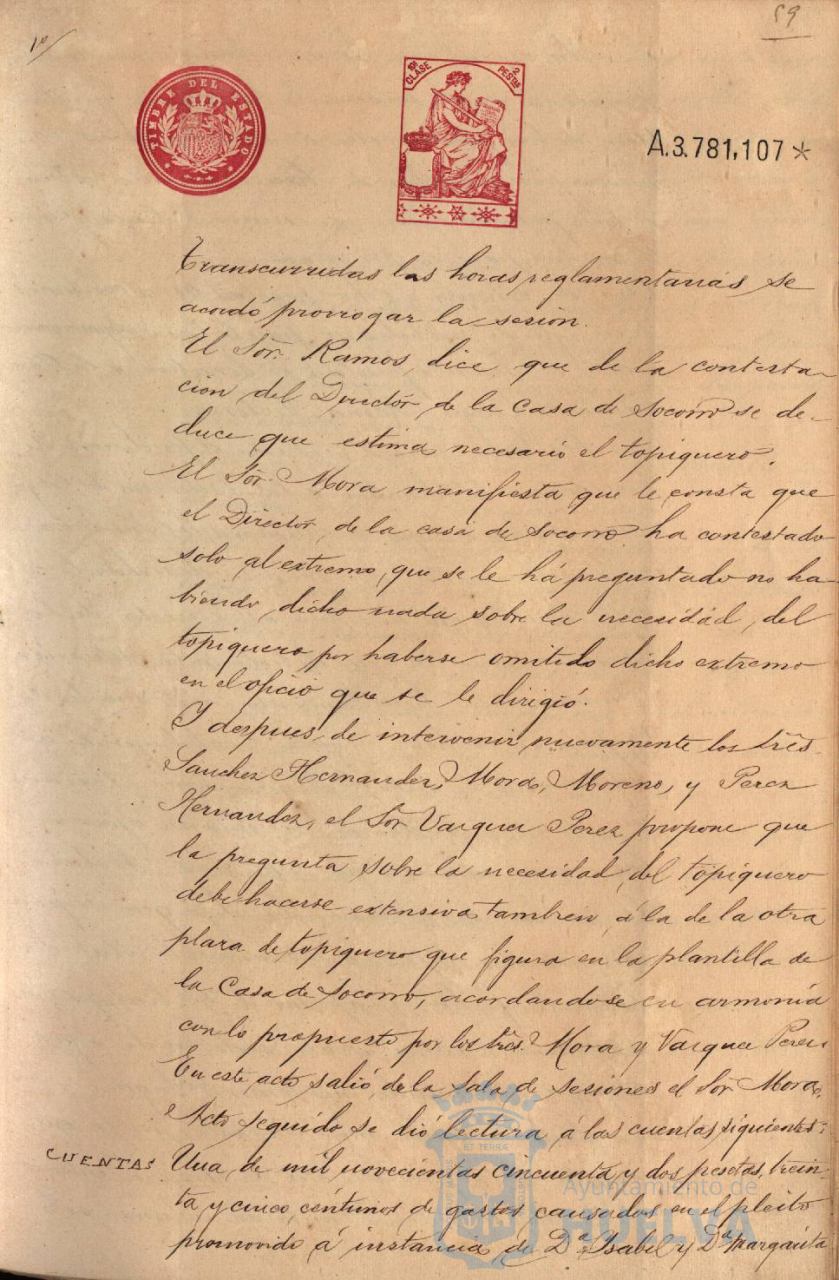 59
1º
TIMBRE DEL ESTADO
5ª CLASE 2 PESTAS
A.3.781,107*
Transcurridas las horas reglamentarias se
acordó prorrogar la sesión.
El Sor. Ramos, dice que de la contesta-
ción del Director de la Casa de Socorro se de-
duce que estima necesario el topiquero.
El Sor. Mora manifiesta que le consta que
el Director de la casa de Socorro ha contestado
solo al extremo que se le há preguntado no ha-
biendo dicho nada sobre la necesidad, del
topiquero por haberse omitido dicho extremo
en el oficio que se le dirigió.
Y despues de intervenir nuevamente los Sres.
Sanchez Hernandez, Mora, Moreno, y Perez
Hernandez, el Sor. Vazquez Perez propone que
la pregunta sobre la necesidad del topiquero
debe hacerse extensiva tambien á la de la otra
plaza de topiquero que figura en la plantilla de
la Casa de Socorro, acordandose en armonía
con lo propuesto por los Sres. Mora y Vazquez Perez.
En este acto salió de la Sala de sesiones el Sor. Mora.
Acto seguido se dió lectura á las cuentas siguientes:
CUENTAS Una de mil novecientas cincuenta y dos pesetas, trein-
ta y cinco céntimos de gastos causados en el pleito
promovido á instancia de Dª Isabel y Dª Margarita
Ayuntamiento de
HUELVA